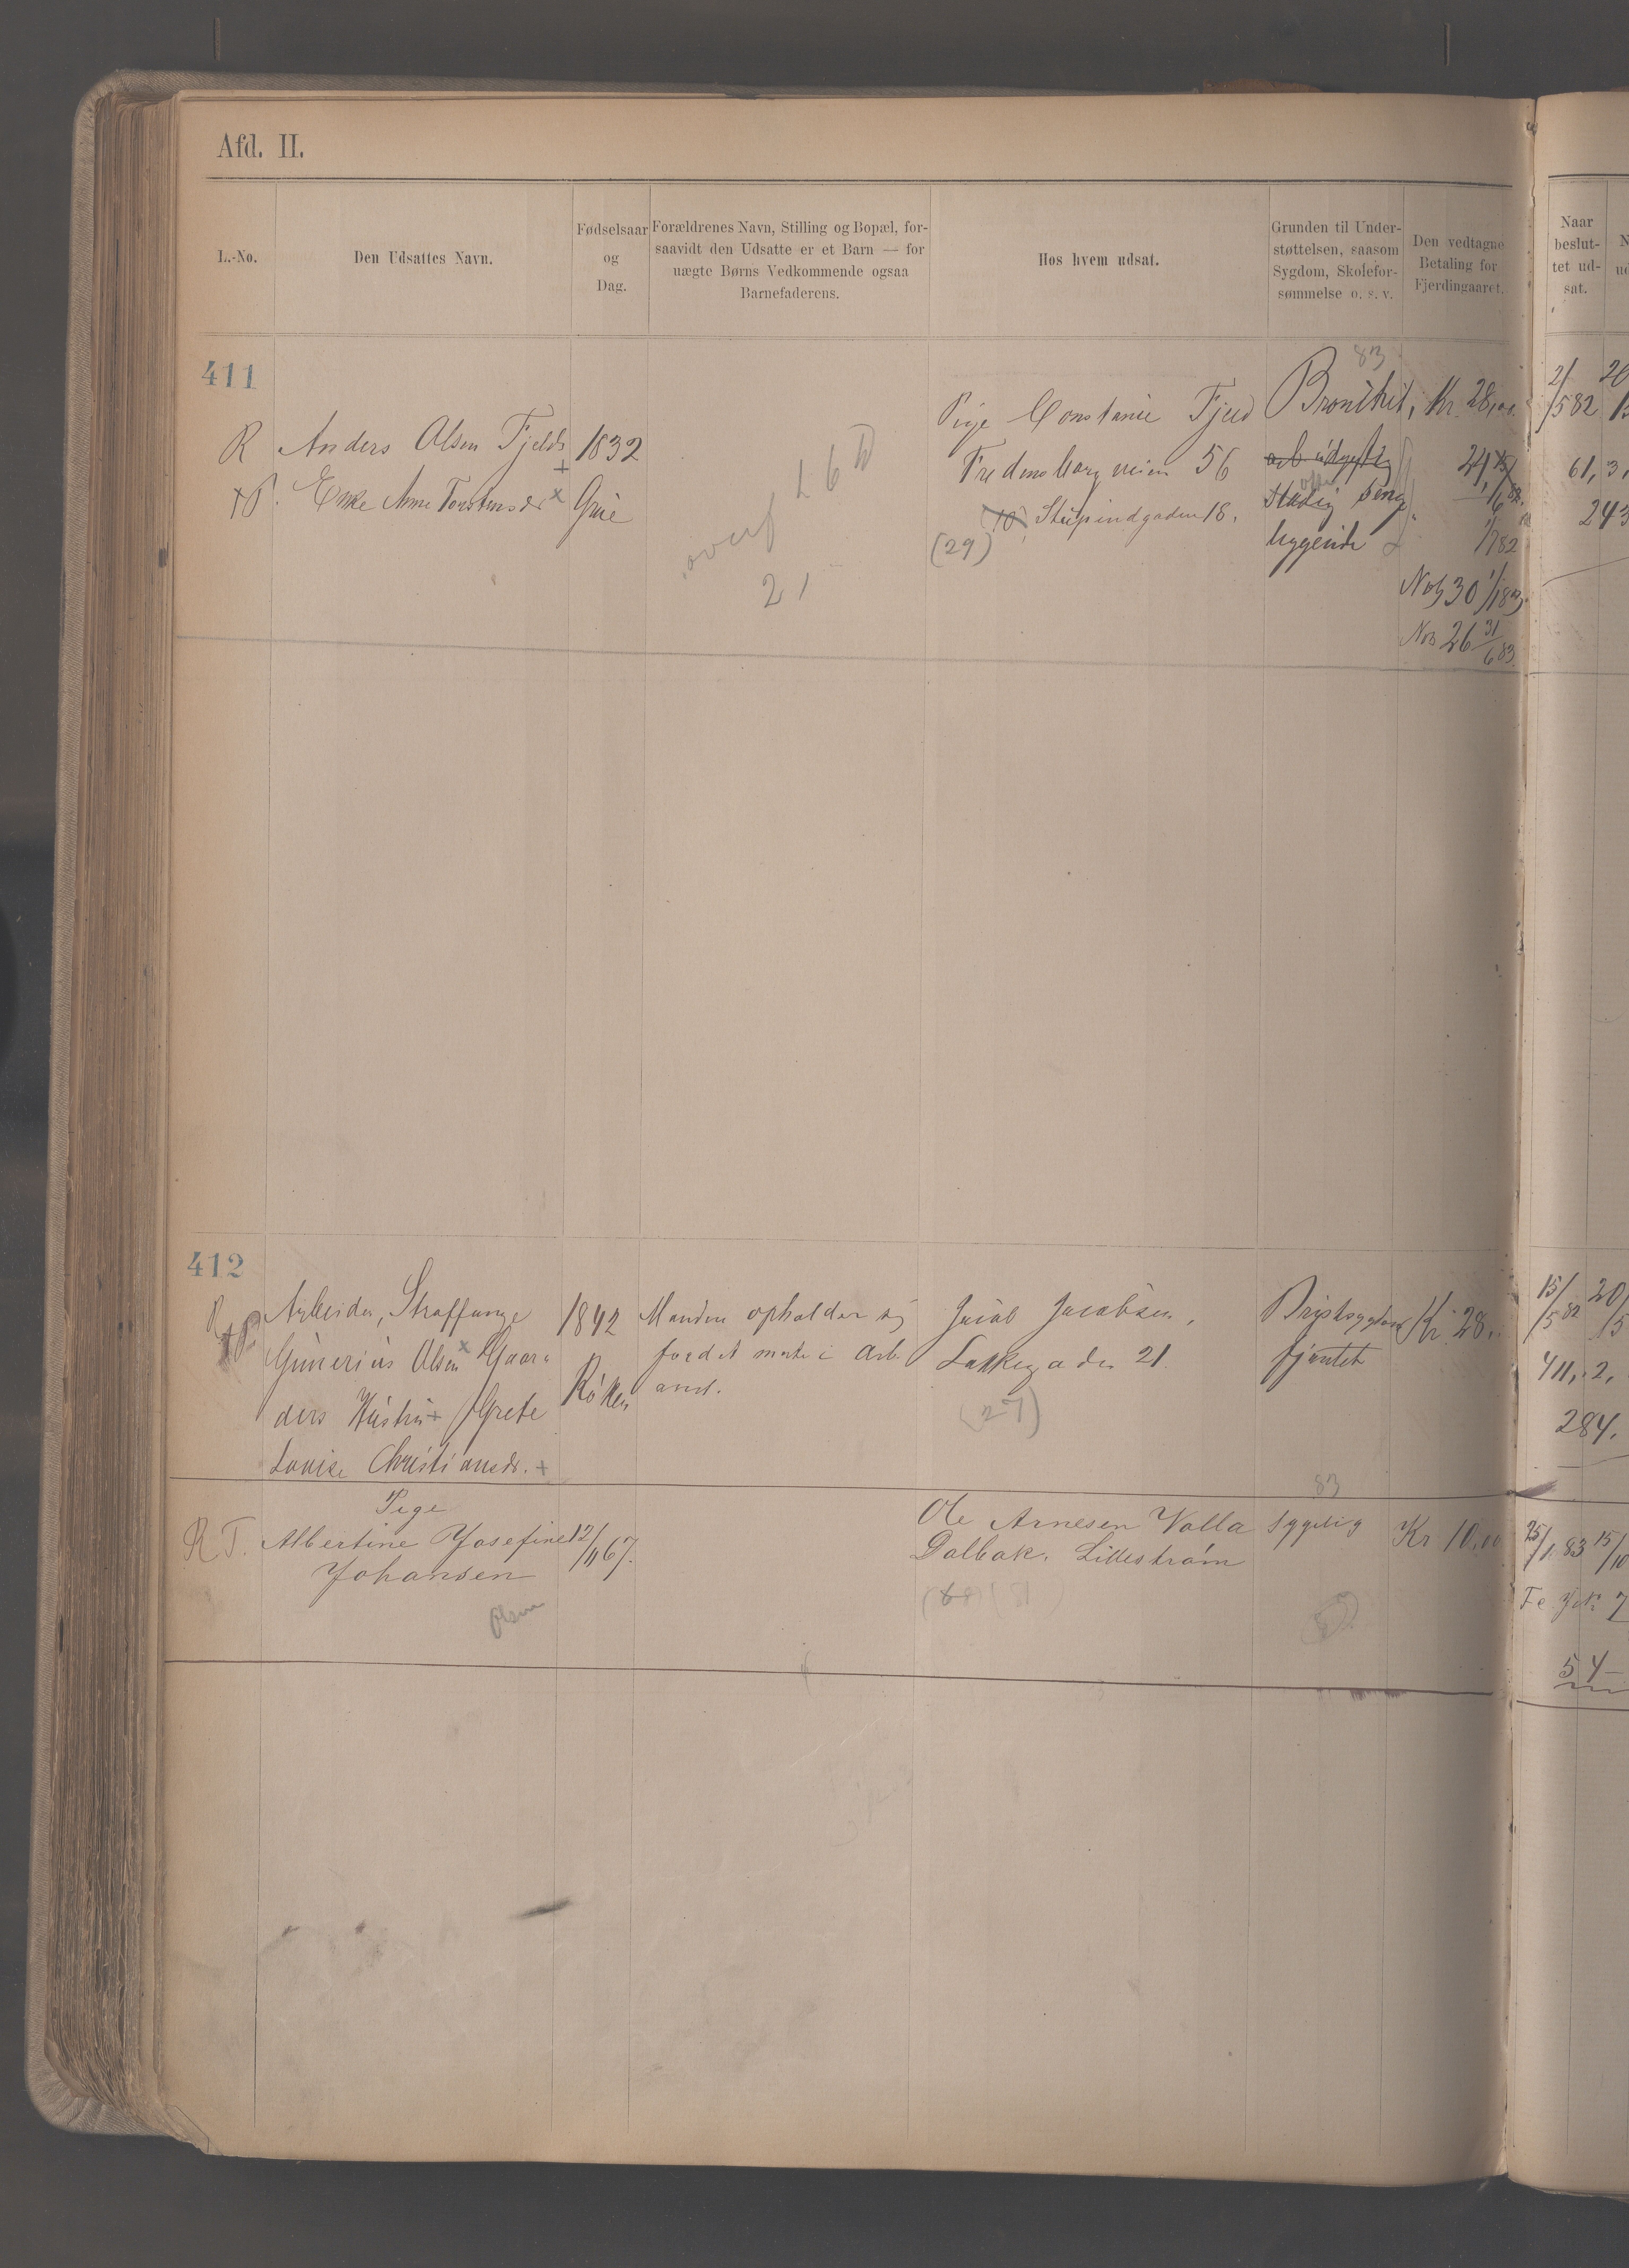 Afd. II.
L.-No.
Den Udsattes Navn.
Fødselsaar
og
Dag.
Forældrenes Navn, Stilling og Bopæl, for-
saavidt den Udsatte er et Barn — for
uægte Børns Vedkommende ogsaa
Barnefaderens.
Hos hvem udsat.
Grunden til Under-
støttelsen, saasom
Sygdom, Skolefor-
sømmelse o. s. v.
Den vedtagne
Betaling for
Fjerdingaaret.
Naar
beslut-
tet ud-
sat.
411
R Anders Olsen Fjelds 1832
Enke Anne Torstensdr
overf
21
Pige Constance
Fredensborgveien 56
18.
(29)
83
Kr. 28,00
Stadig senge
liggende
1/7 82
30 1/1 83
26 31/6 83
2/5 82
61, 3,
243
412
Arbeider, Straffange
Gunerius Olsen Gaar-
ders Hustru Grete
Louise Christiansdr.
1842
Røken
Manden opholder sig
for det meste i Arb.
anst.
Jacob Jacobsen,
Lakkegaden 21.
(27)
Brystsygdom
Kr. 28,
15/5 82
411, 2,
284.
R T. Pige
Albertine Josefine
Johansen
Olsen
12/11 67.
Ole Arnesen Valla
Dalbak. Lillestrøm
83
Sygelig
Kr 10,00
25/1 83 15/10
54—